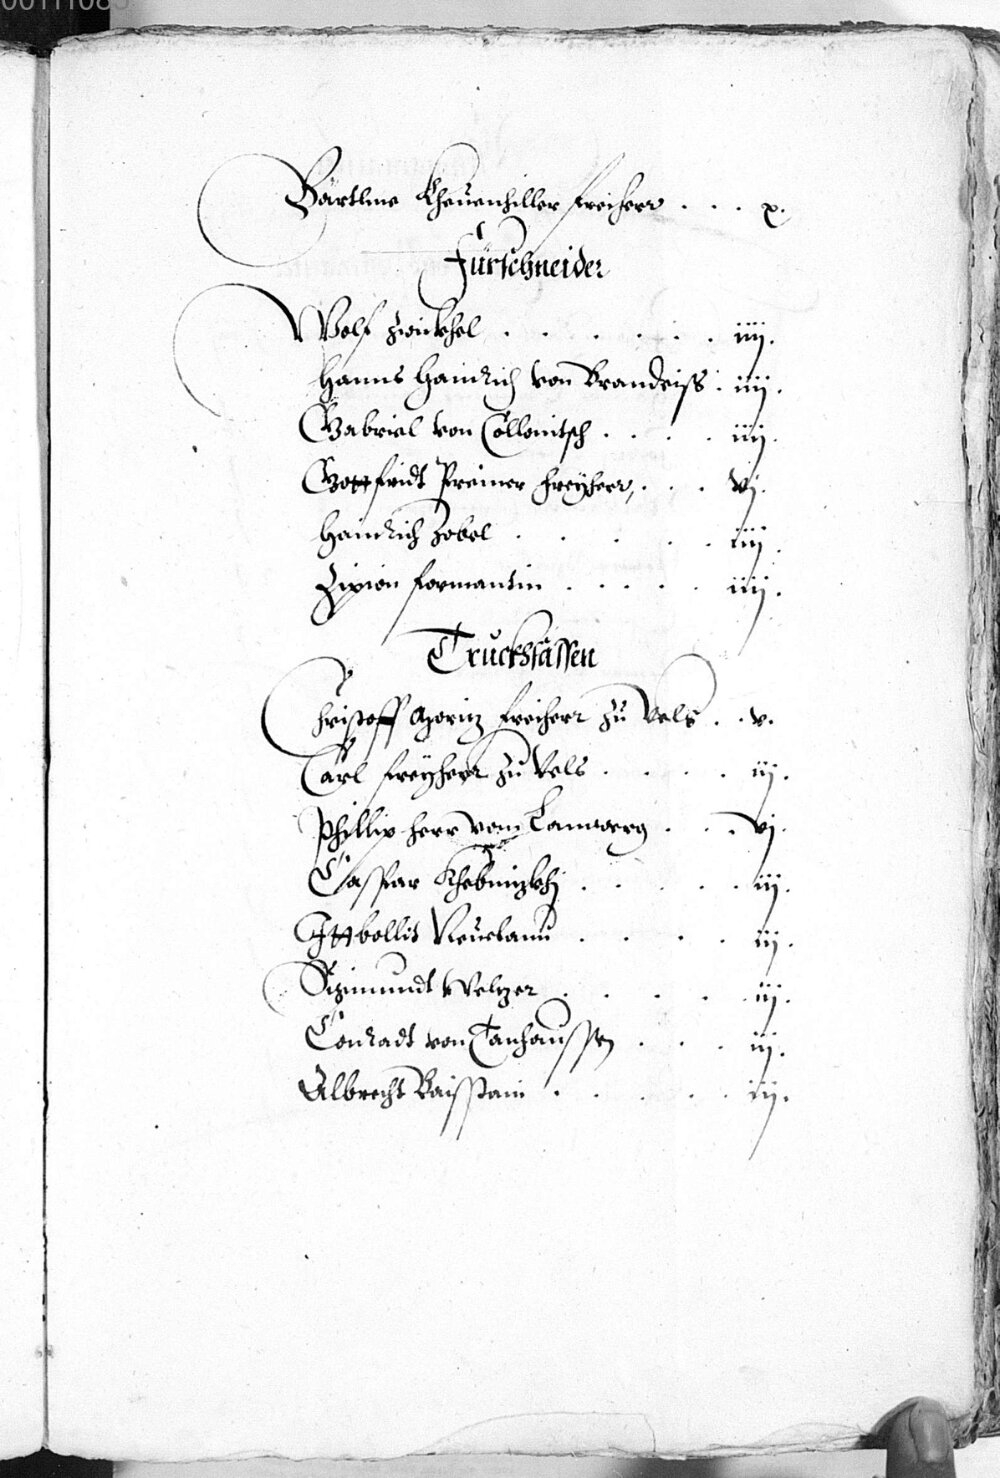 Bärtlme Kheuenhiller freiherr . . . x.
Fürschneider
Wolf Zwickhel . . . . . . iiij.
Hanns Hainrich von Brandeiss . iiij.
Gabriel von Collonitsch . . . . iiij.
Gottfridt Preiner freyherr, . . . vj.
Hainrich Zobel . . . . . iiij.
Zipion formantin . . . . . iiij.
Truckhsässen
Christoff Moritz freiherr zu Vels . . v.
Carl freyherr zu Vels . . . . iij.
Phillip herr vom . . . vj.
Caspar . . . . . iij.
. . . . iij.
Sigmundt Weltzer . . . . iij.
Conradt von Tanhaussen . . . iij.
Albrecht . . . . . iij.